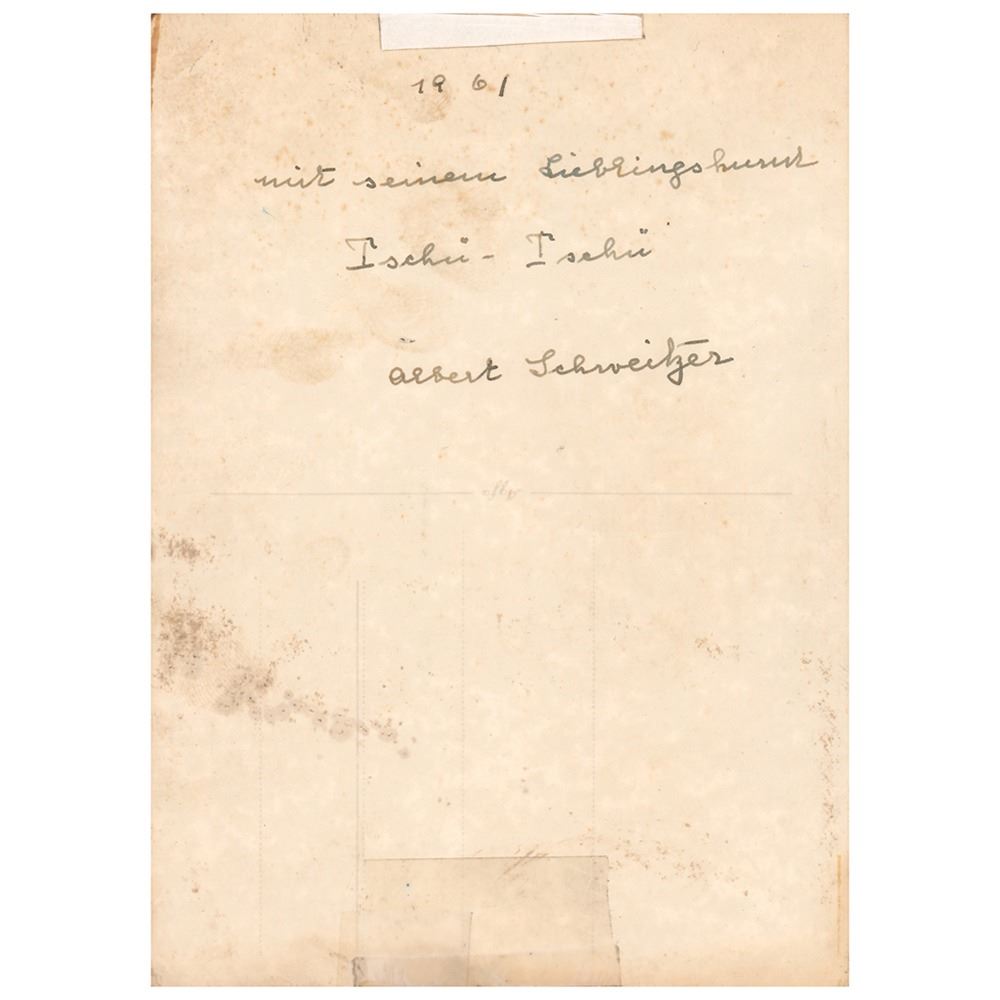 1961
mit seinem Lieblingshund
Tschü - Tschü
Albert Schweitzer